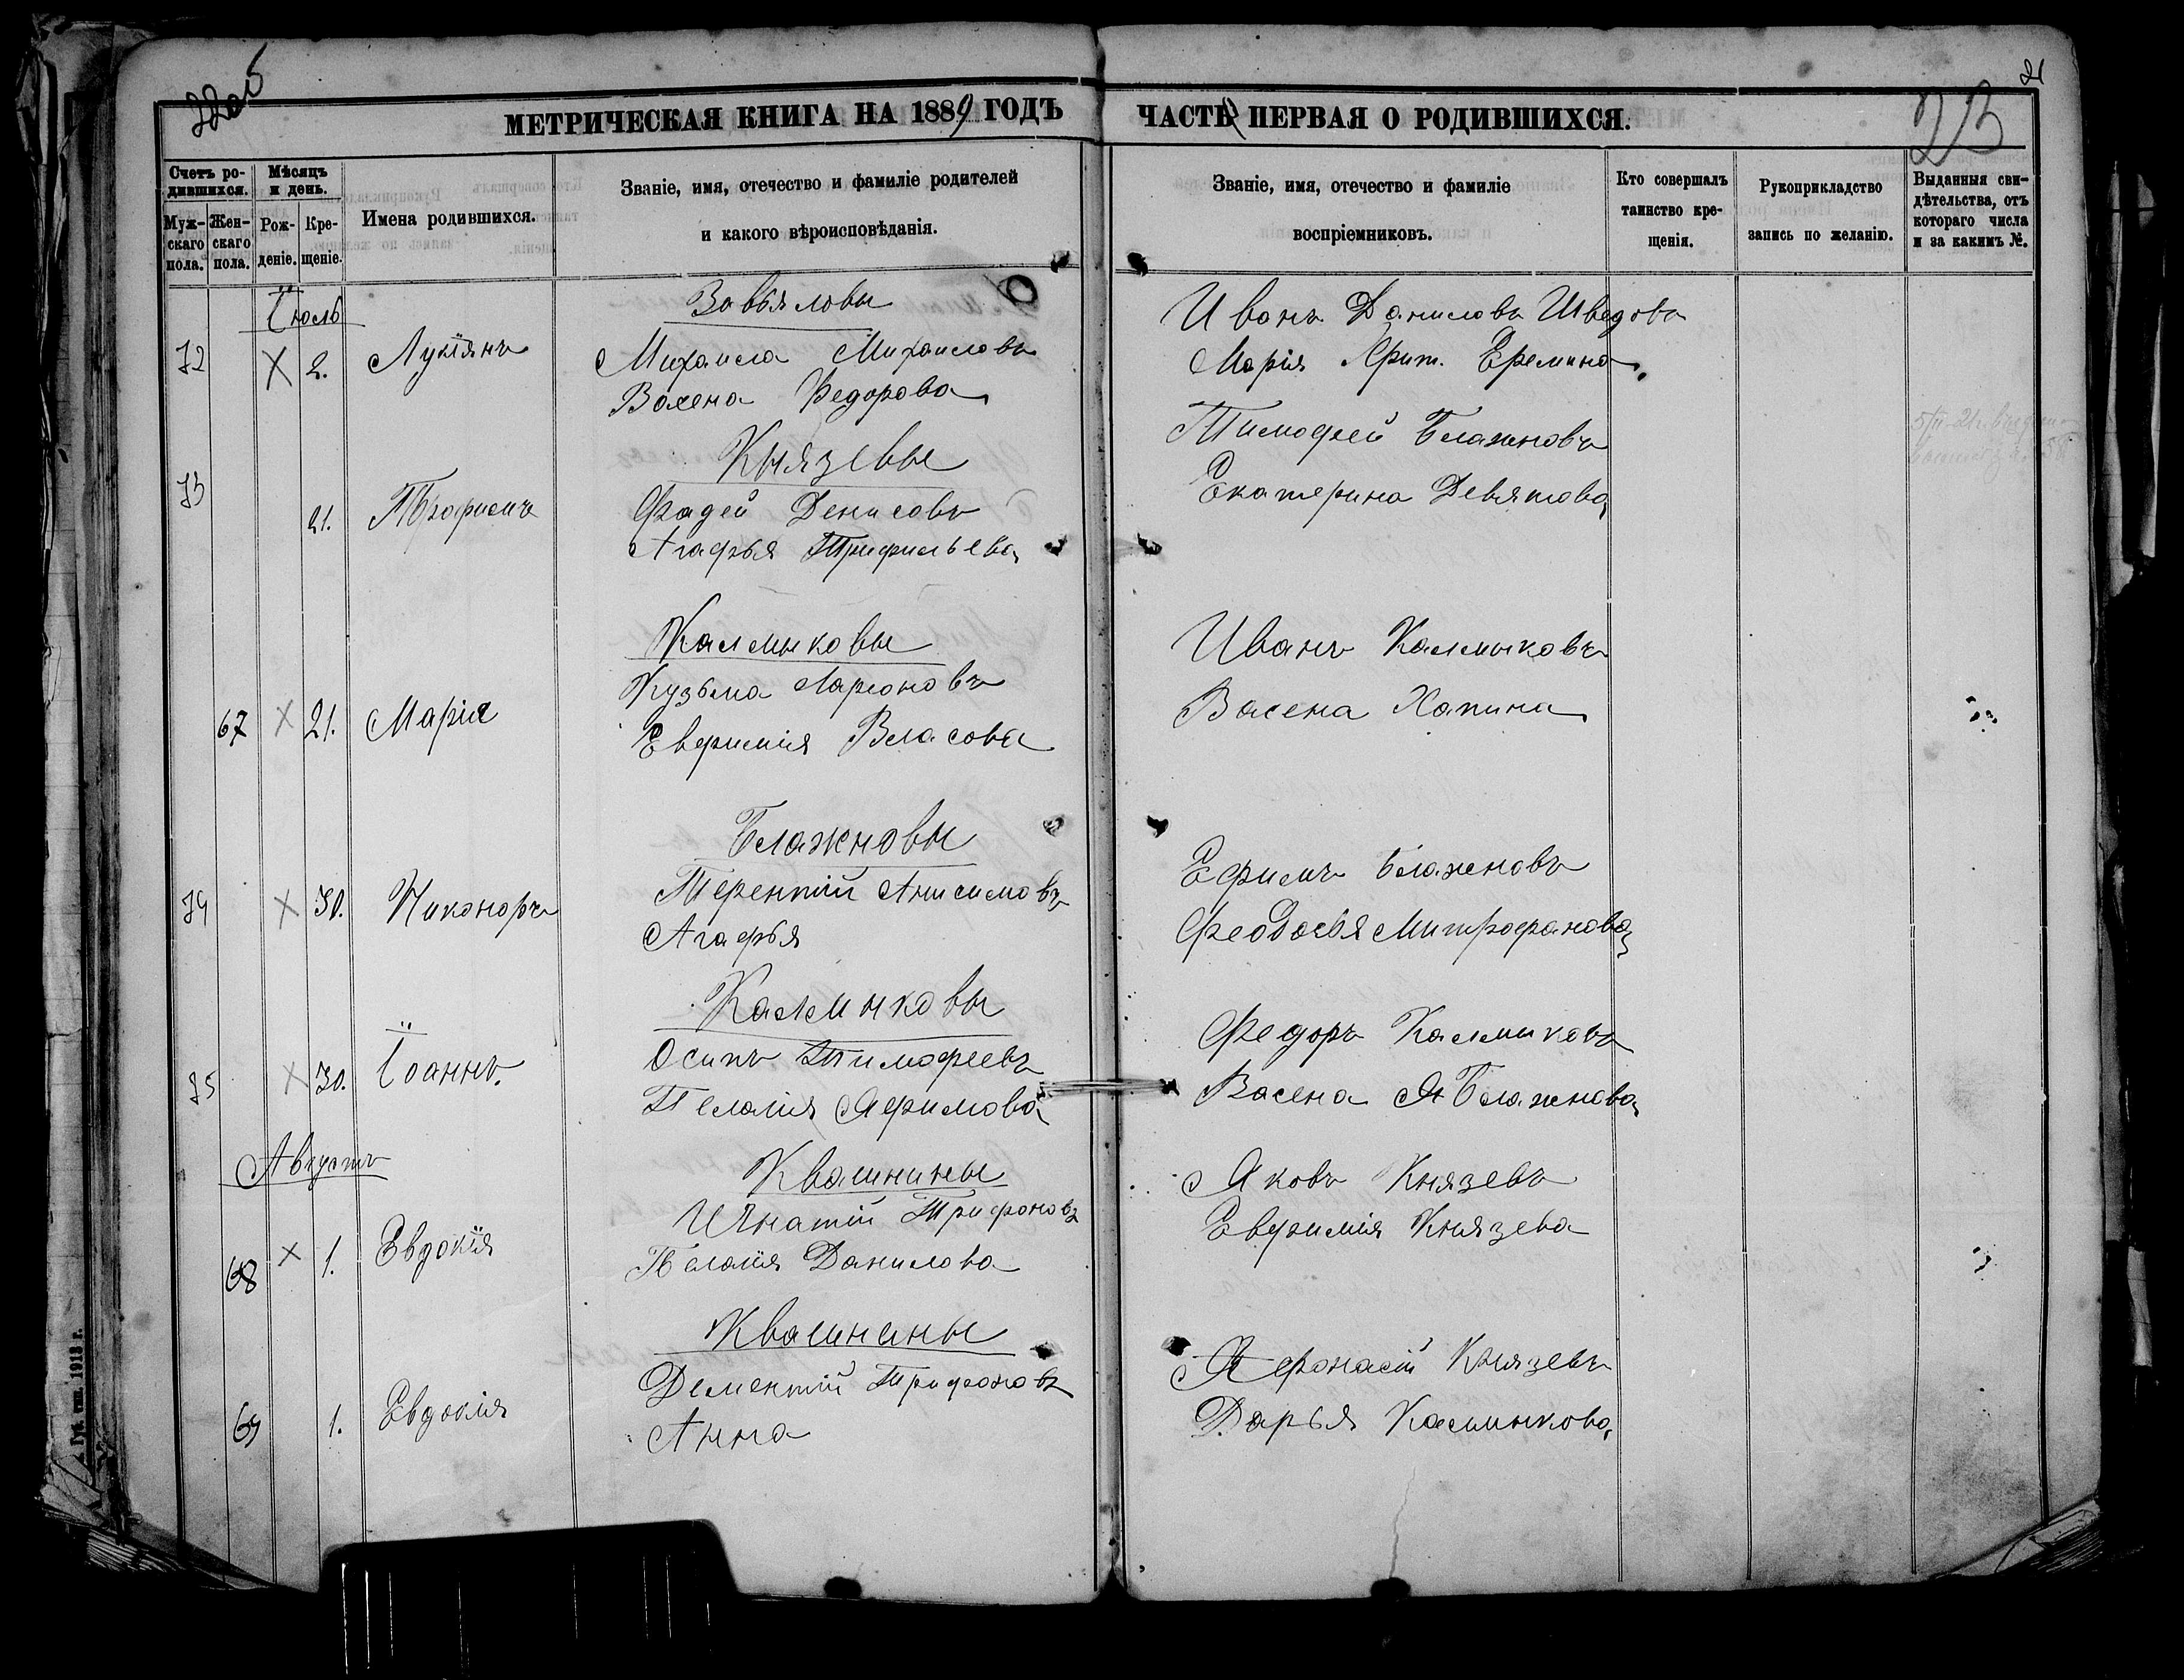 22об
21
23
МЕТРИЧЕСКАЯ КНИГА НА 1889 ГОДЪ
ЧАСТЬ ПЕРВАЯ О РОДИВШИХСЯ.
Счетъ ро-
дившихся.
Муж-
скаго
пола.
Жен-
скаго
пола.
Мѣсяцъ
и день.
Рож-
деніе.
Кре-
щеніе.
Имена родившихся.
Званіе, имя, отечество и фамиліе родителей
и какого вѣроисповѣданія.
Званіе, имя, отечество и фамиліе
воспріемниковъ.
Кто совершалъ
таинство кре-
щенія.
Рукоприкладство
запись по желанію.
Выданныя сви-
дѣтельства, отъ
котораго числа
и за какимъ №.
Іюль
Завьяловы
72 X 2. Лукіянъ
Михаила Михаиловъ
Васена Федорова
Иванъ Даниловъ Шведовъ
Марія Еремина
Князевы
73 21. Трофимъ
Фадей Денисовъ
Агафья Трифильева
Тимофей Блажновъ
Екатерина Девятова
Калмыковы
67 X 21. Марія
Кузьма Ларіоновъ
Евфимія Власова
Иванъ Калмыковъ
Васена Хапина
Блажновы
74 X 30. Никоноръ
Терентій Анисимовъ
Агафья
Ефимъ Блаженовъ
Феодосья Митрофанова
Калмыковы
75 X 30. Іоаннъ.
Осипъ Тимофеевъ
Пелагія Яфимова
Федоръ Калмыковъ
Васена Я Блажнова
Августъ
Квашнины
68 X 1. Евдокія
Игнатій Трифоновъ
Пелагія Данилова
Яковъ Князевъ
Евфимія Князева
Квашнины
69 1. Евдокія
Дементій Трифоновъ
Анна
Афонасій Князевъ
Дарья Калмыкова
Губ. тип. 1913 г.